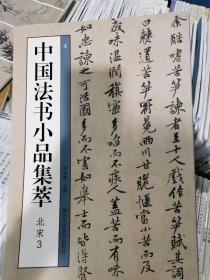 中国法书小品集萃
北宋 3
余酷嗜苦笋諫者至十人戲作苦笋賦其詞
曰僰道苦笋冠冕兩川甘脆愜當小苦而反
成味溫潤縝密多啗而不疾人蓋苦而有味
如忠諫之可活國多而不害如舉士而皆得賢